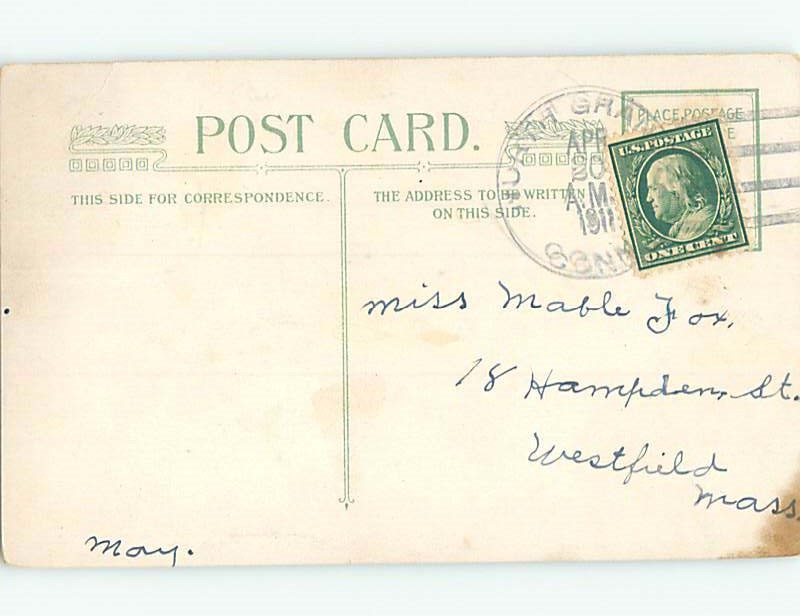 POST CARD.
THIS SIDE FOR CORRESPONDENCE.
THE ADDRESS TO BE WRITTEN
ON THIS SIDE.
PLACE POSTAGE
NORTH GRAN
APR
20
A.M.
1911
CONN
U.S. POSTAGE
ONE CENT
Miss Mable Fox,
18 Hampden, St.
Westfield
Mass.
May.